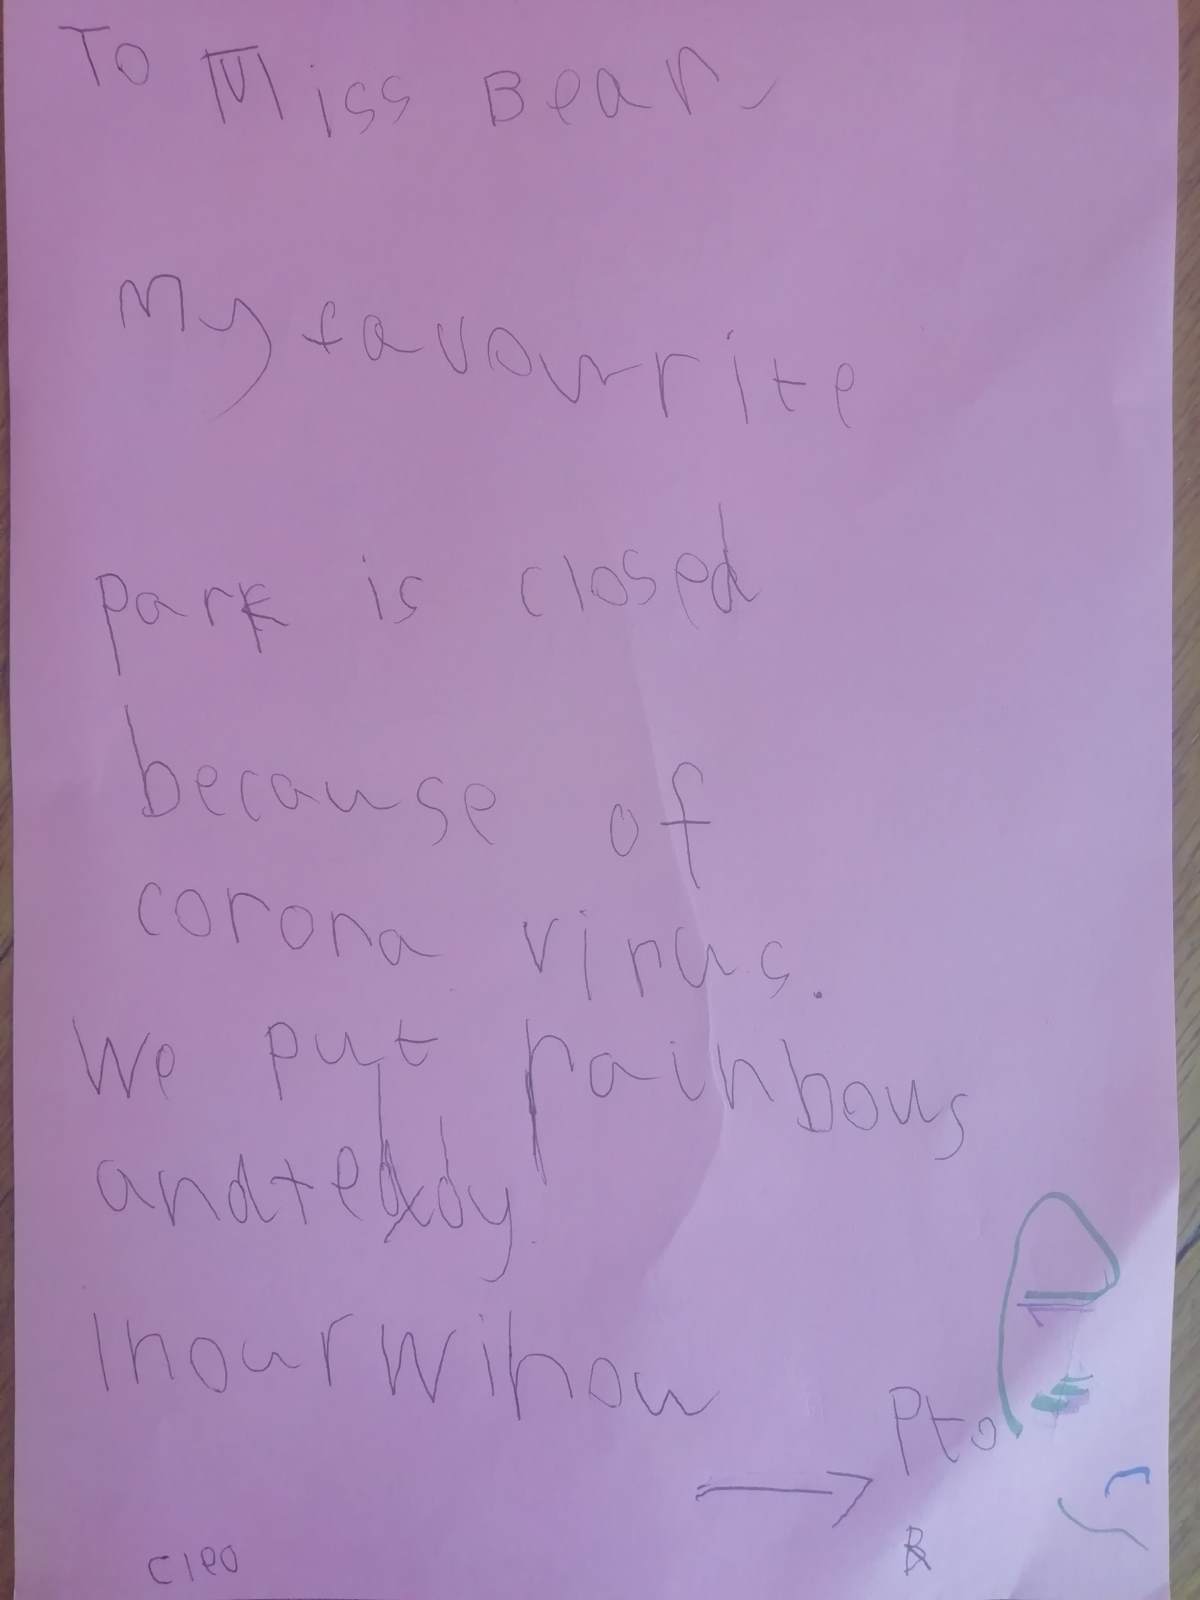 To Miss Bear,
My favourite
park is closed
because of
corona virus.
We put rainbows
andteddy
inourwinow
→ Pto
cleo